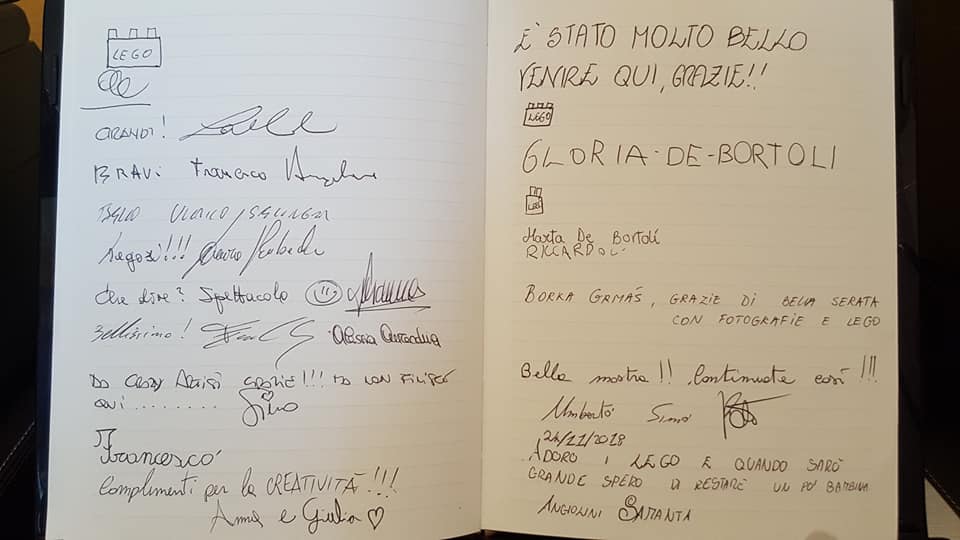 LEGO
GRANDI!
BRAVi Francesco
BELLO
Ragazzi!!!
Che dire? Spettacolo
Bellissimo!
GRAZIE!!!
QUI........
Francesco
Complimenti per la CREATIVITÀ!!!
Anna e Giulia
È STATO MOLTO BELLO
VENIRE QUI, GRAZIE!!
LEGO
GLORIA-DE-BORTOLI
LEG
Marta De Bortoli
RICCARDO
BORKA GAMÁS, GRAZIE DI BELLA SERATA
CON FOTOGRAFIE E LEGO
Bella mostra!! Continuate così!!!
Umberto Simó
24/11/2018
ADORO I LEGO E QUANDO SARÒ
GRANDE SPERO DI RESTARE UN PO' BAMBINA
ANGIONNI SAMANTA